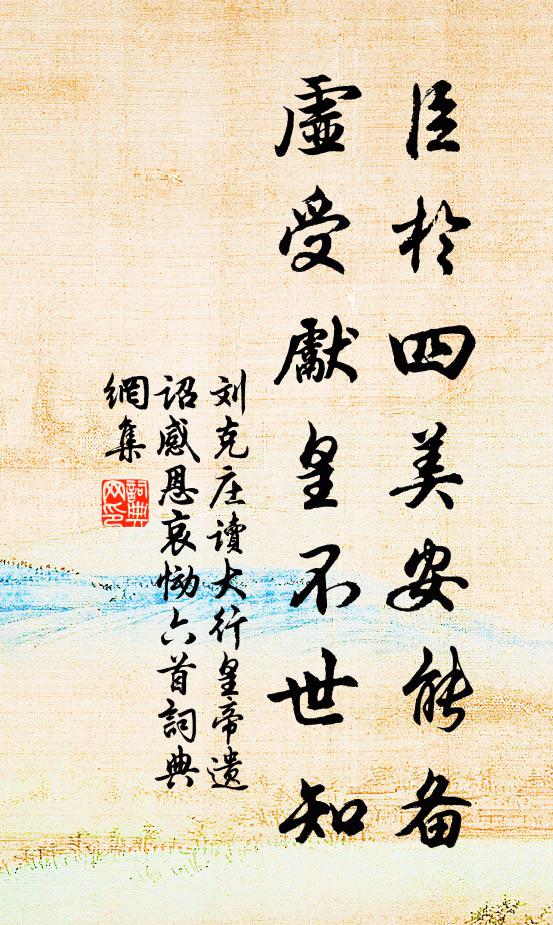 臣於四美安能备
虚受獻皇不世知
刘克庄讀大行皇帝遗
诏感恩哀恸六首詞典
網集
詞典網印